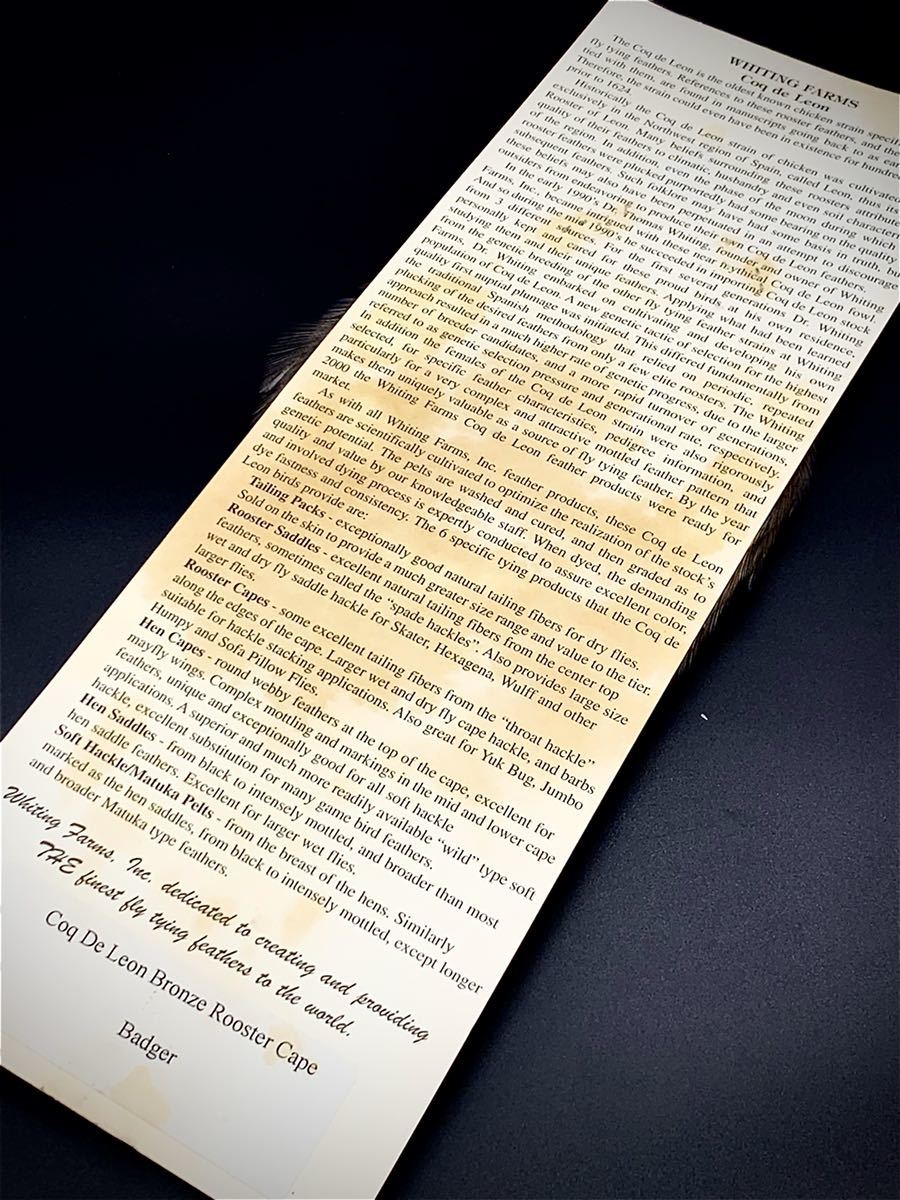 WHITING FARMS
Coq de Leon
The Coq de Leon is the oldest known chicken strain specif
fly tying feathers. References to these rooster feathers, and the
tied with them, are found in manuscripts going back to as ear
Therefore, the strain could even have been in existence for hundre
prior to 1624.
Historically the Coq de Leon strain of chicken was cultivate
exclusively in the Northwest region of Spain, called Leon, thus its
Rooster of Leon. Many beliefs surrounding these roosters attribute
quality of their feathers to climatic, husbandry and even soil character
of the region. In addition, even the phase of the moon during which
rooster feathers were plucked purportedly had some bearing on the quality
subsequent feathers. Such folklore may have had some basis in truth, bu
these beliefs may also have been perpetuated in an attempt to discourage
outsiders from endeavoring to produce their own Coq de Leon feathers.
In the early 1990's Dr. Thomas Whiting, founder & owner of Whiting
Farms, Inc., became intrigued with these near mythical Coq de Leon fowl.
And so during the mid 1990's he succeeded in importing Coq de Leon stock
from 3 different sources. For the first several generations Dr. Whiting
personally kept and cared for these proud birds at his own residence,
studying them and their unique feathers. Applying what had been learned
from the genetic breeding of the other fly tying feather strains at Whiting
Farms, Dr. Whiting embarked on cultivating and developing his own
population of Coq de Leon. A new genetic tactic of selection for the highest
quality first nuptial plumage was initiated. This differed fundamentally from
the traditional Spanish methodology that relied on periodic, repeated
plucking of the desired feathers from only a few elite roosters. The Whiting
approach resulted in a much higher rate of genetic progress, due to the larger
number of breeder candidates and a more rapid turnover of generations,
referred to as genetic selection pressure and generational rate, respectively.
In addition the females of the Coq de Leon strain were also rigorously
selected for specific feather characteristics, pedigree information, and
particularly for a very complex and attractive mottled feather pattern that
makes them uniquely valuable as a source of fly tying feather. By the year
2000 the Whiting Farms Coq de Leon feather products were ready for
market.
As with all Whiting Farms, Inc. feather products, these Coq de Leon
feathers are scientifically cultivated to optimize the realization of the stock's
genetic potential. The pelts are washed and cured, and then graded as to
quality and value by our knowledgeable staff. When dyed, the demanding
and involved dying process is expertly conducted to assure excellent color,
dye fastness and consistency. The 6 specific tying products that the Coq de
Leon birds provide are:
Tailing Packs - exceptionally good natural tailing fibers for dry flies.
Sold on the skin to provide a much greater size range and value to the tier.
Rooster Saddles - excellent natural tailing fibers from the center top
feathers, sometimes called the "spade hackles". Also provides large size
wet and dry fly saddle hackle for Skater, Hexagena, Wulff and other
larger flies.
Rooster Capes - some excellent tailing fibers from the "throat hackle"
along the edges of the cape. Larger wet and dry fly cape hackle, and barbs
suitable for hackle stacking applications. Also great for Yuk Bug, Jumbo
Humpy and Sofa Pillow Flies.
Hen Capes - round webby feathers at the top of the cape, excellent for
mayfly wings. Complex mottling and markings in the mid and lower cape
feathers, unique and exceptionally good for all soft hackle
applications. A superior and much more readily available "wild" type soft
hackle, excellent substitution for many game bird feathers.
Hen Saddles - from black to intensely mottled, and broader than most
hen saddle feathers. Excellent for larger wet flies.
Soft Hackle/Matuka Pelts - from the breast of the hens. Similarly
marked as the hen saddles, from black to intensely mottled, except longer
and broader Matuka type feathers.
Whiting Farms, Inc. dedicated to creating and providing
THE finest fly tying feathers to the world.
Coq De Leon Bronze Rooster Cape
Badger